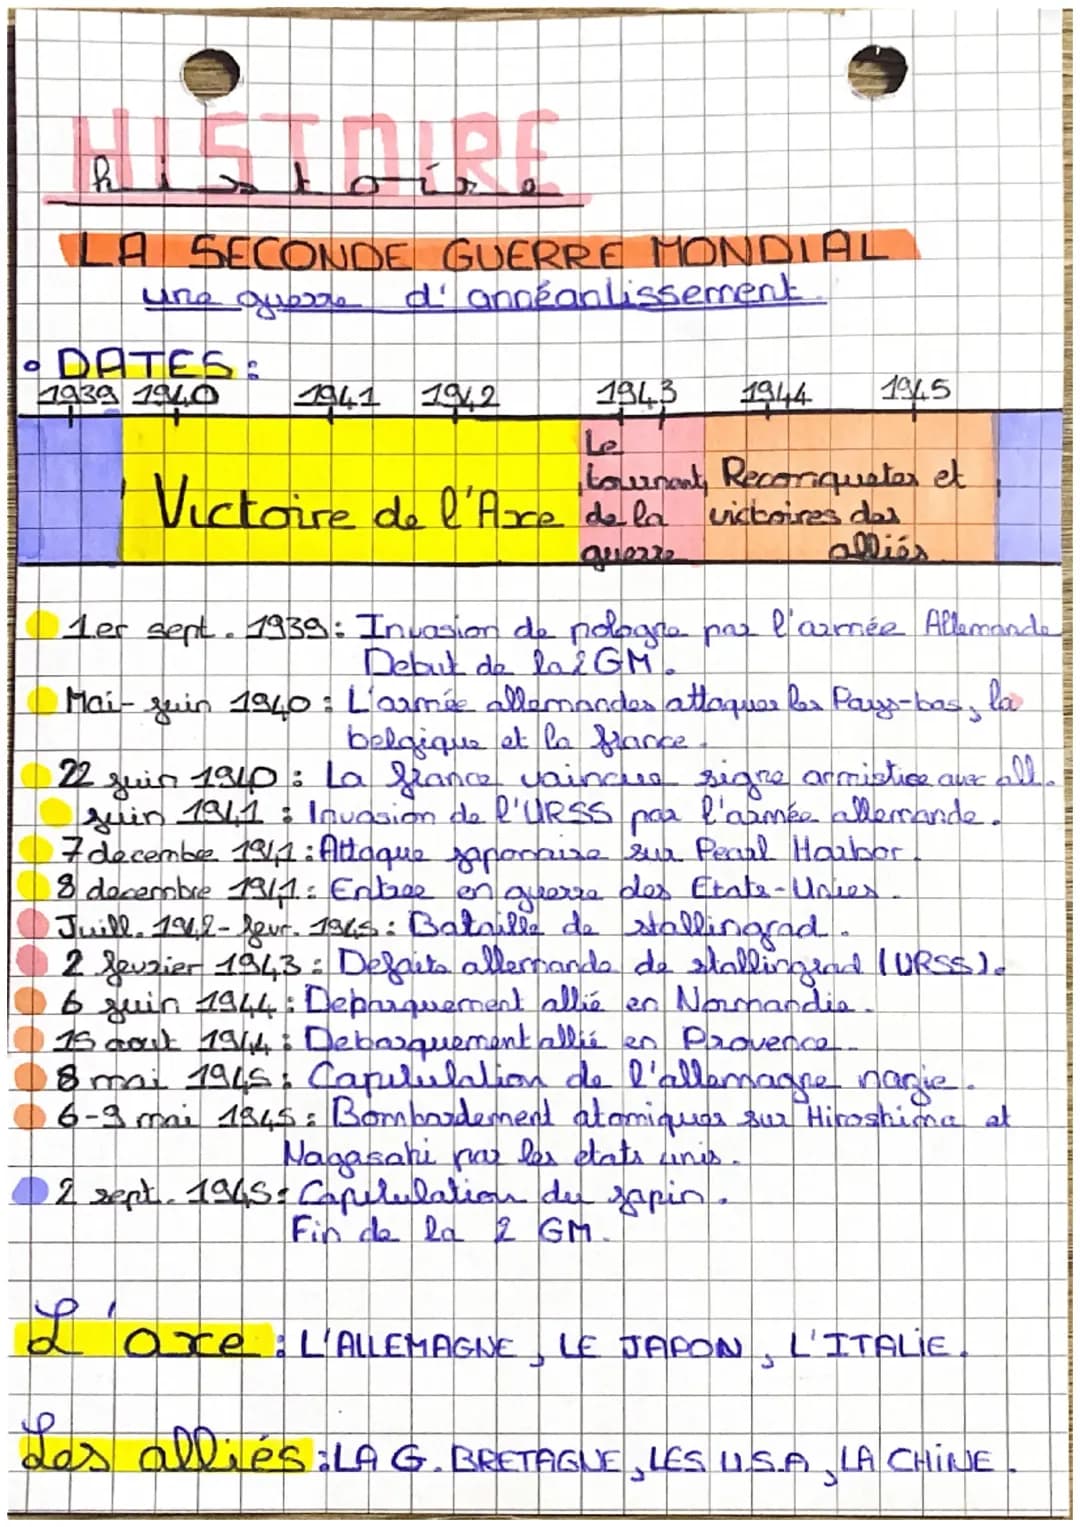 HISTOIRE
histoire
LA SECONDE GUERRE MONDIAL
une guerre d'annéantissement.
• DATES :
1939 1940 1941 1942 1943 1944 1945
Victoire de l'Axe
Le
tournant
de la
guerre
Reconquetes et
victoires des
alliés
1er sept. 1939 : Invasion de pologne par l'armée Allemande
Debut de la 2 GM.
Mai-juin 1940 : L'armée allemandes attaques les Pays-bas, la
belgique et la france.
22 juin 1940 : La france vaincue signe armistice avec all.
juin 1941 : Invasion de l'URSS par l'armée allemande.
7 decembe 1941 : Attaque japonaise sur Pearl Harbor.
8 decembre 1941 : Entree en guerre des Etats-Unies.
Juill. 1942-fevr. 1945 : Bataille de stallingrad.
2 fevrier 1943 : Defaite allemande de stallingrad (URSS).
6 juin 1944 : Debarquement allié en Normandie.
15 aout 1944 : Debarquement allié en Provence.
8 mai 1945 : Capitulation de l'allemagne nazie.
6-9 mai 1945 : Bombardement atomiques sur Hiroshima et
Nagasaki par les etats unis.
2 sept. 1945 : Capitulation du japin.
Fin de la 2 GM.
L'axe : L'ALLEMAGNE, LE JAPON, L'ITALIE.
Les alliés : LA G. BRETAGNE, LES U.S.A, LA CHINE.